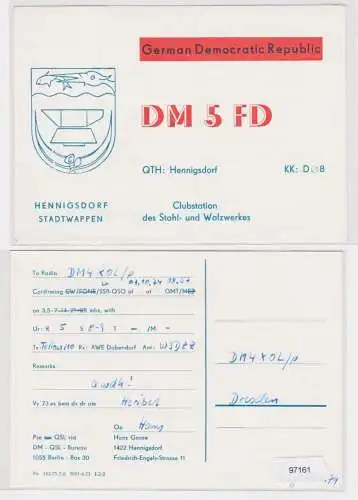 German Democratic Republic
DM 5 FD
QTH: Hennigsdorf KK: D
HENNIGSDORF
STADTWAPPEN
Clubstation
des Stahl- und Walzwerkes
To Radio DM4XOL/p
Confirming CW/FONE/SSB-QSO at GMT/MEZ
on 3,5-7-14-21-28 mhz, with
Ur: R 5 S 8-9 T – /M –
Tx: Rx: AWE Dabendorf Ant: W3DZZ
Remarks
awdh!
Vy 73 es best dx dr om Heribert
Op Hans
Pse QSL via
DM - QSL - Bureau
1055 Berlin - Box 30
Hans Gense
1422 Hennigsdorf
Friedrich-Engels-Strasse 11
DM4XOL/p
Dresden
97161